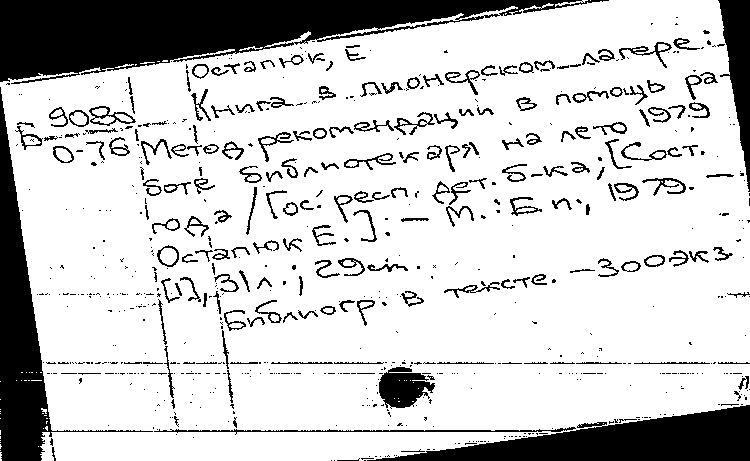 Остапюк, Е
Книга в пионерском лагере:
Б 9080
О-76
Метод. рекомендации в помощь ра-
боте библиотекаря на лето 1979
года / Гос. респ. дет. б-ка; [Сост.
Остапюк Е.]: — М.: Б.п., 1979. —
[1], 31 л.; 29 cm.
Библиогр. в тексте. — 300 экз